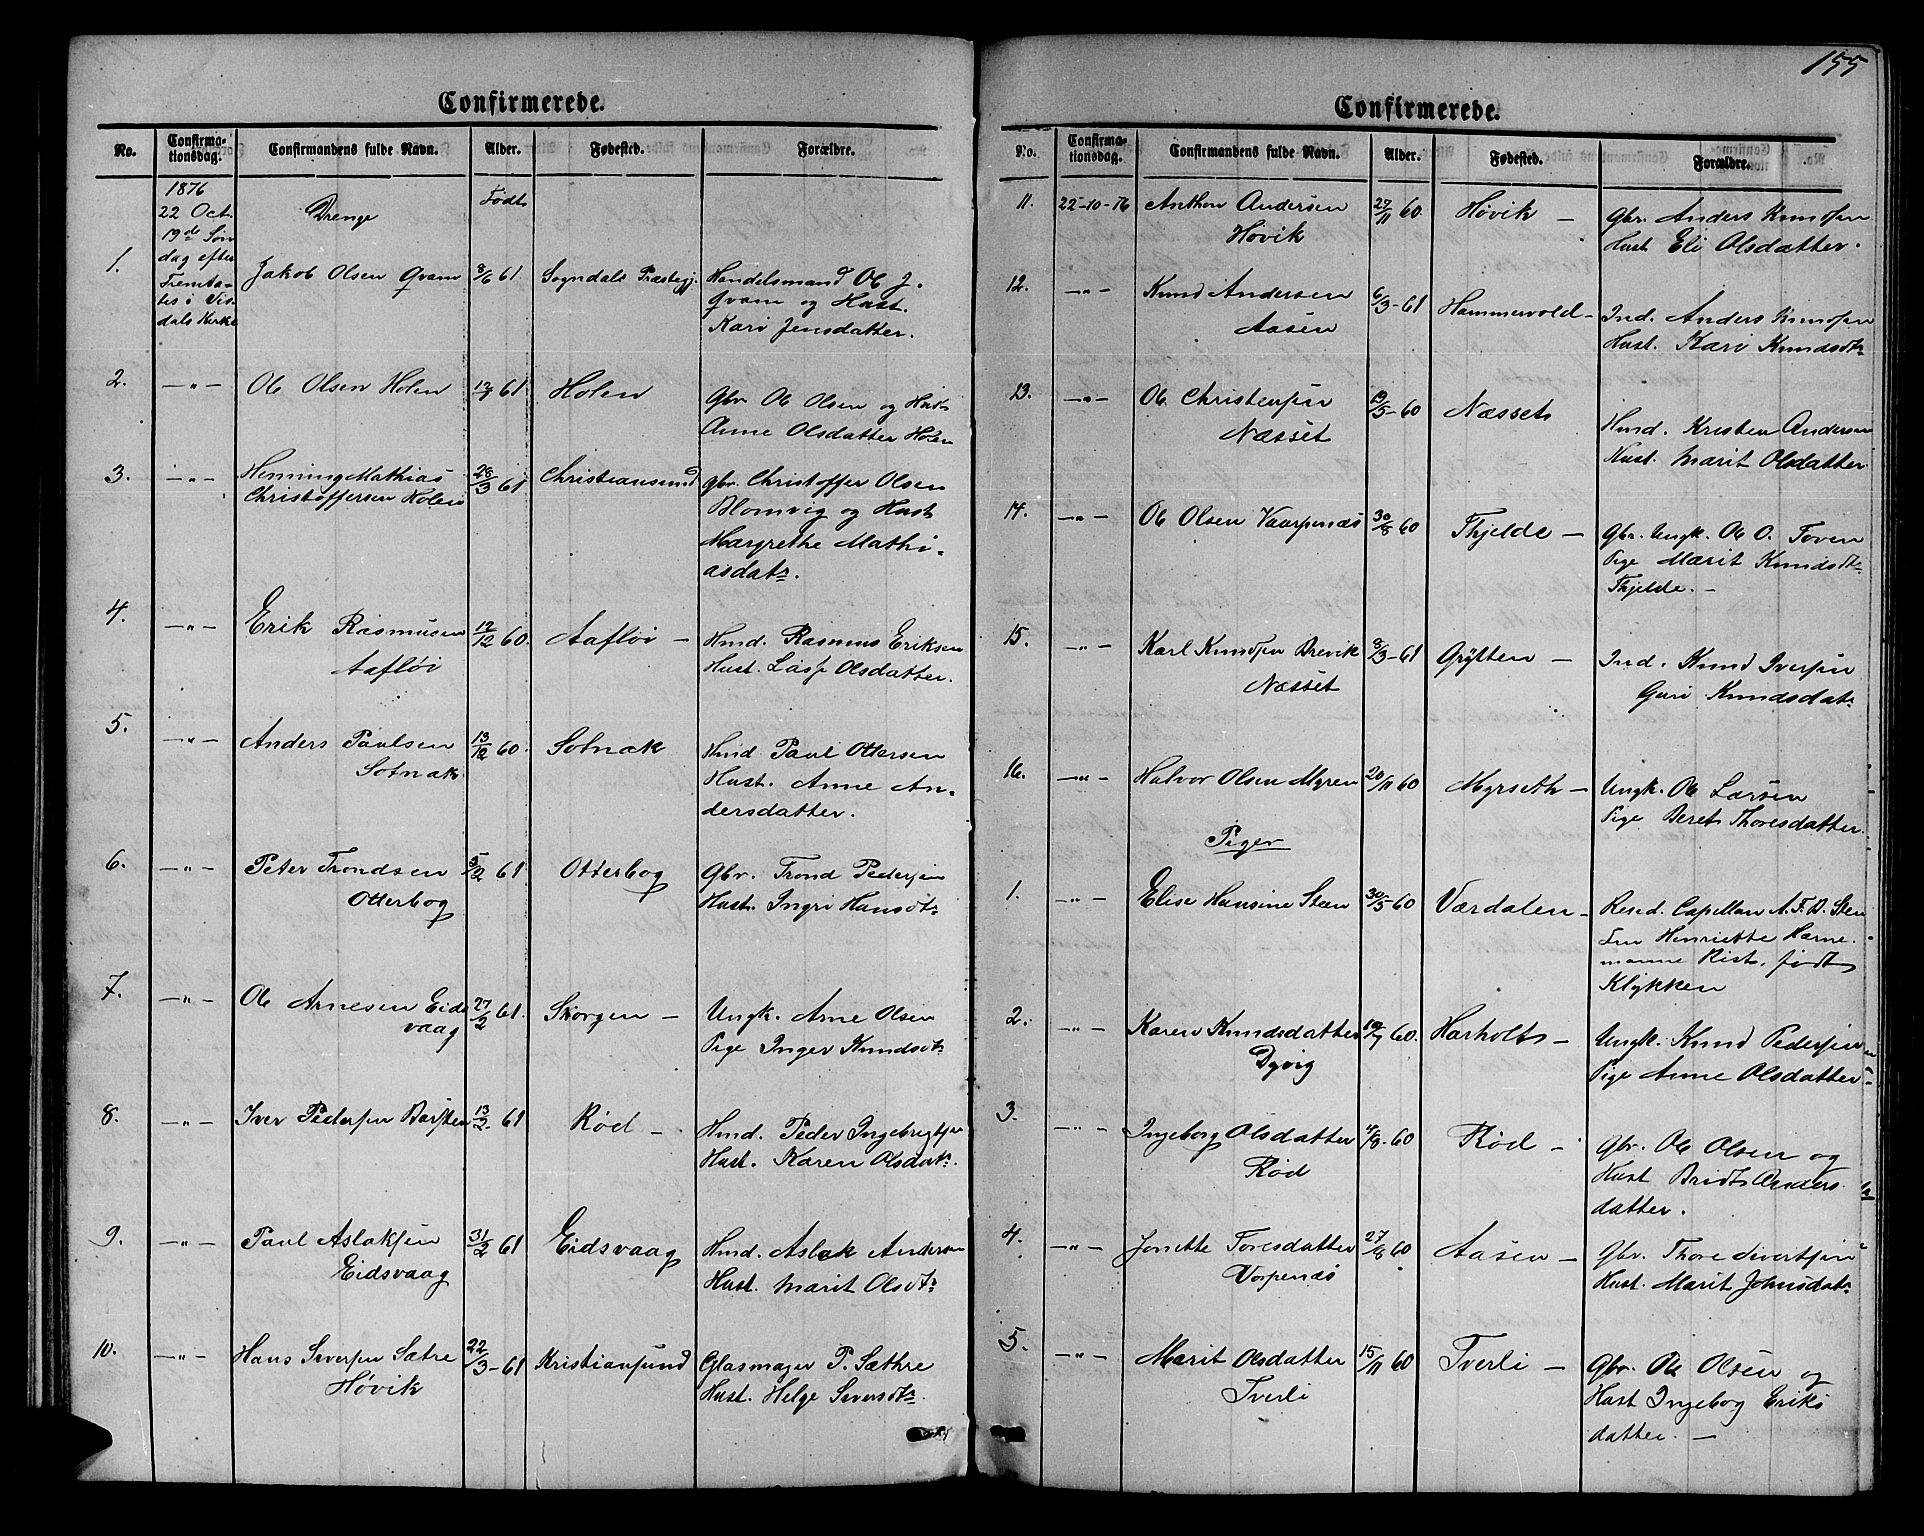 Confirmerede.
No. Confirma-tionsdag. Confirmandens fulde Navn. Alder. Fødested. Forældre.
1876
22 Oct.
19de Søn
dag efter
Tremta-
tis i Vis
dals Kirke
Drenge
Født
1. Jakob Olsen Qvam 8/6 61 Sogndals Præstegj. Handelsmand Ole J.
Qvam og Hust.
Kari Jensdatter.
2. —"— Ole Olsen Holen 61 Holen Gbr. Ole Olsen og Hust
Anne Olsdatter Holen
3. —"— Henning Mathias 28/3 61 Christiansund gbr. Christoffer Olsen
Christoffersen Holen Blomvig og Hust
Margrethe Mathi-
asdatr.
4. —"— Erik Rasmusen 12/12 60. Aafløi — Hmd. Rasmus Eriksen
Aafløi Hust. Olsdatter.
5. —"— Anders Paulsen 13/12 60. Sotnak Hmd. Paul Ottersen
Sotnak Hust. Anne An-
dersdatter.
6. —"— Peter Trondsen 5/2 61 Otterbog Gbr. Trond Pedersen
Otterbog Hust. Ingri Hansdtr
7. —"— Ole Arnesen Eids 27/2 61. Skorgen — Ungk. Arne Olsen
vaag Pige Inger Knudsdtr
8. —"— Iver Pedersen 13/2-61 Rød — Hmd. Peder Ingebrigtsen
Hust. Karen Olsdatr.
9. —"— Paul Aslaksen 31/2 61 Eidsvaag Hmd. Aslak Andersen
Eidsvaag Hust. Marit Olsdtr
10. —"— Hans Siversen Sætre 22/3-61 Kristiansund Glasmager P. Sæthre
Høvik Hust. Helge Siversdtr.
155
Confirmerede.
No. Confirma-tionsdag. Confirmandens fulde Navn. Alder. Fødested. Forældre.
11. 22-10-76 Anthon Andersen 27/11 60. Høvik — Gbr. Anders Knudsen
Høvik Hust Eli Olsdatter.
12. —"— Knud Andersen 6/3-61 Hammervold- Ind. Anders Knudsen
Aasen Hust. Kari Knudsdtr
13. —"— Ole Christensen 19/5-60 Næsset Hmd. Kristen Andersen
Næsset Hust. Marit Olsdatter
14. —"— Ole Olsen Vaarpenæs 30/8 60 Thjelde — Gbr. Ungk. Ole O. Toven
Pige Marit Knudsdtr
Thjelde. —
15. —"— Karl Knudsen Brevik 8/3-61 Grytten — Ind. Knud Iversen
Næsset Guri Knudsdatr
16. —"— Halvor Olsen Myren 20/11 60 Myrseth — Ungk. Ole Larsen
Pige Beret Thoresdatter.
Piger
1. —"— Elise Hansine Steen 30/5-60 Værdalen- Resd. Capellan A. F. D. Sten
Fru Henriette Harne-
manne Rist, født
Klykken
2. —"— Karen Knudsdatter 60. Harholt — Ungk. Knud Pedersen
Dyvig Pige Anne Olsdatter
3. —"— Ingeborg Olsdatter 4/8-60 Rød — Gbr. Ole Olsen og
Rød Hust Anders
datter.
4. —"— Jonette Toresdatter 27/8 60 Aasen — Gbr. Thore Sivertsen
Vorpenæs Hust. Marit Johnsdatr
5. —"— Marit Olsdatter 15/11 60 Tverli — Gbr. Ole Olsen og
Tverli Hust Ingebog Eriks
datter. —